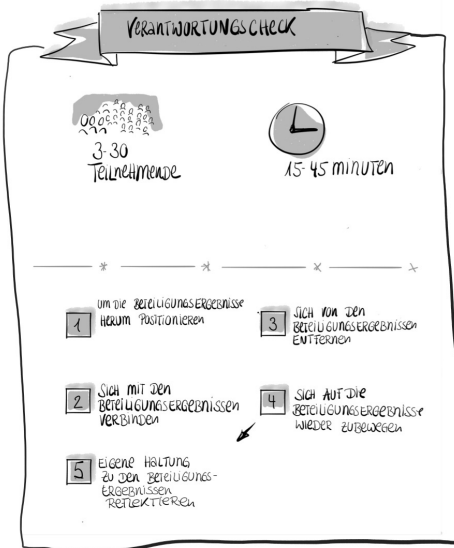 VERANTWORTUNGSCHECK
3-30
TEILNEHMENDE
15-45 MINUTEN
1
UM DIE BETEILIGUNGSERGEBNISSE
HERUM POSITIONIEREN
2
SICH MIT DEN
BETEILIGUNGSERGEBNISSEN
VERBINDEN
3
SICH VON DEN
BETEILIGUNGSERGEBNISSEN
ENTFERNEN
4
SICH AUF DIE
BETEILIGUNGSERGEBNISSE
WIEDER ZUBEWEGEN
5
EIGENE HALTUNG
ZU DEN BETEILIGUNGS-
ERGEBNISSEN
REFLEKTIEREN